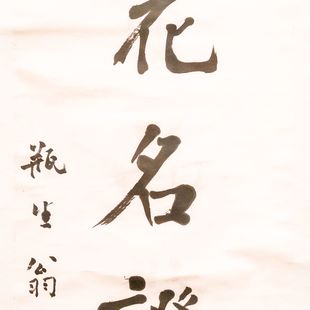 花名
瓶生翁